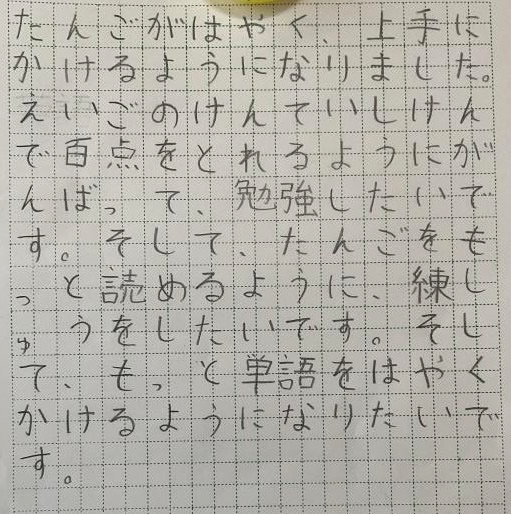 たんごがはやく、上手に
かけるようになりました。
えいごのけんていしけん
で百点をとれるようにが
んばって、勉強したいで
す。そして、たんごをも
っと読めるように、練し
ゅうをしたいです。そし
て、もっと単語をはやく
かけるようになりたいで
す。